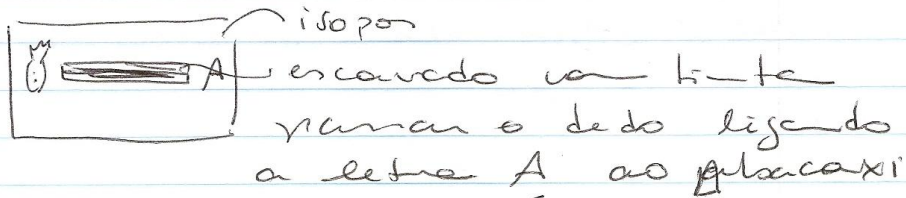 isopor
A escavado com tinta
passar o dedo ligando
a letra A ao Abacaxi